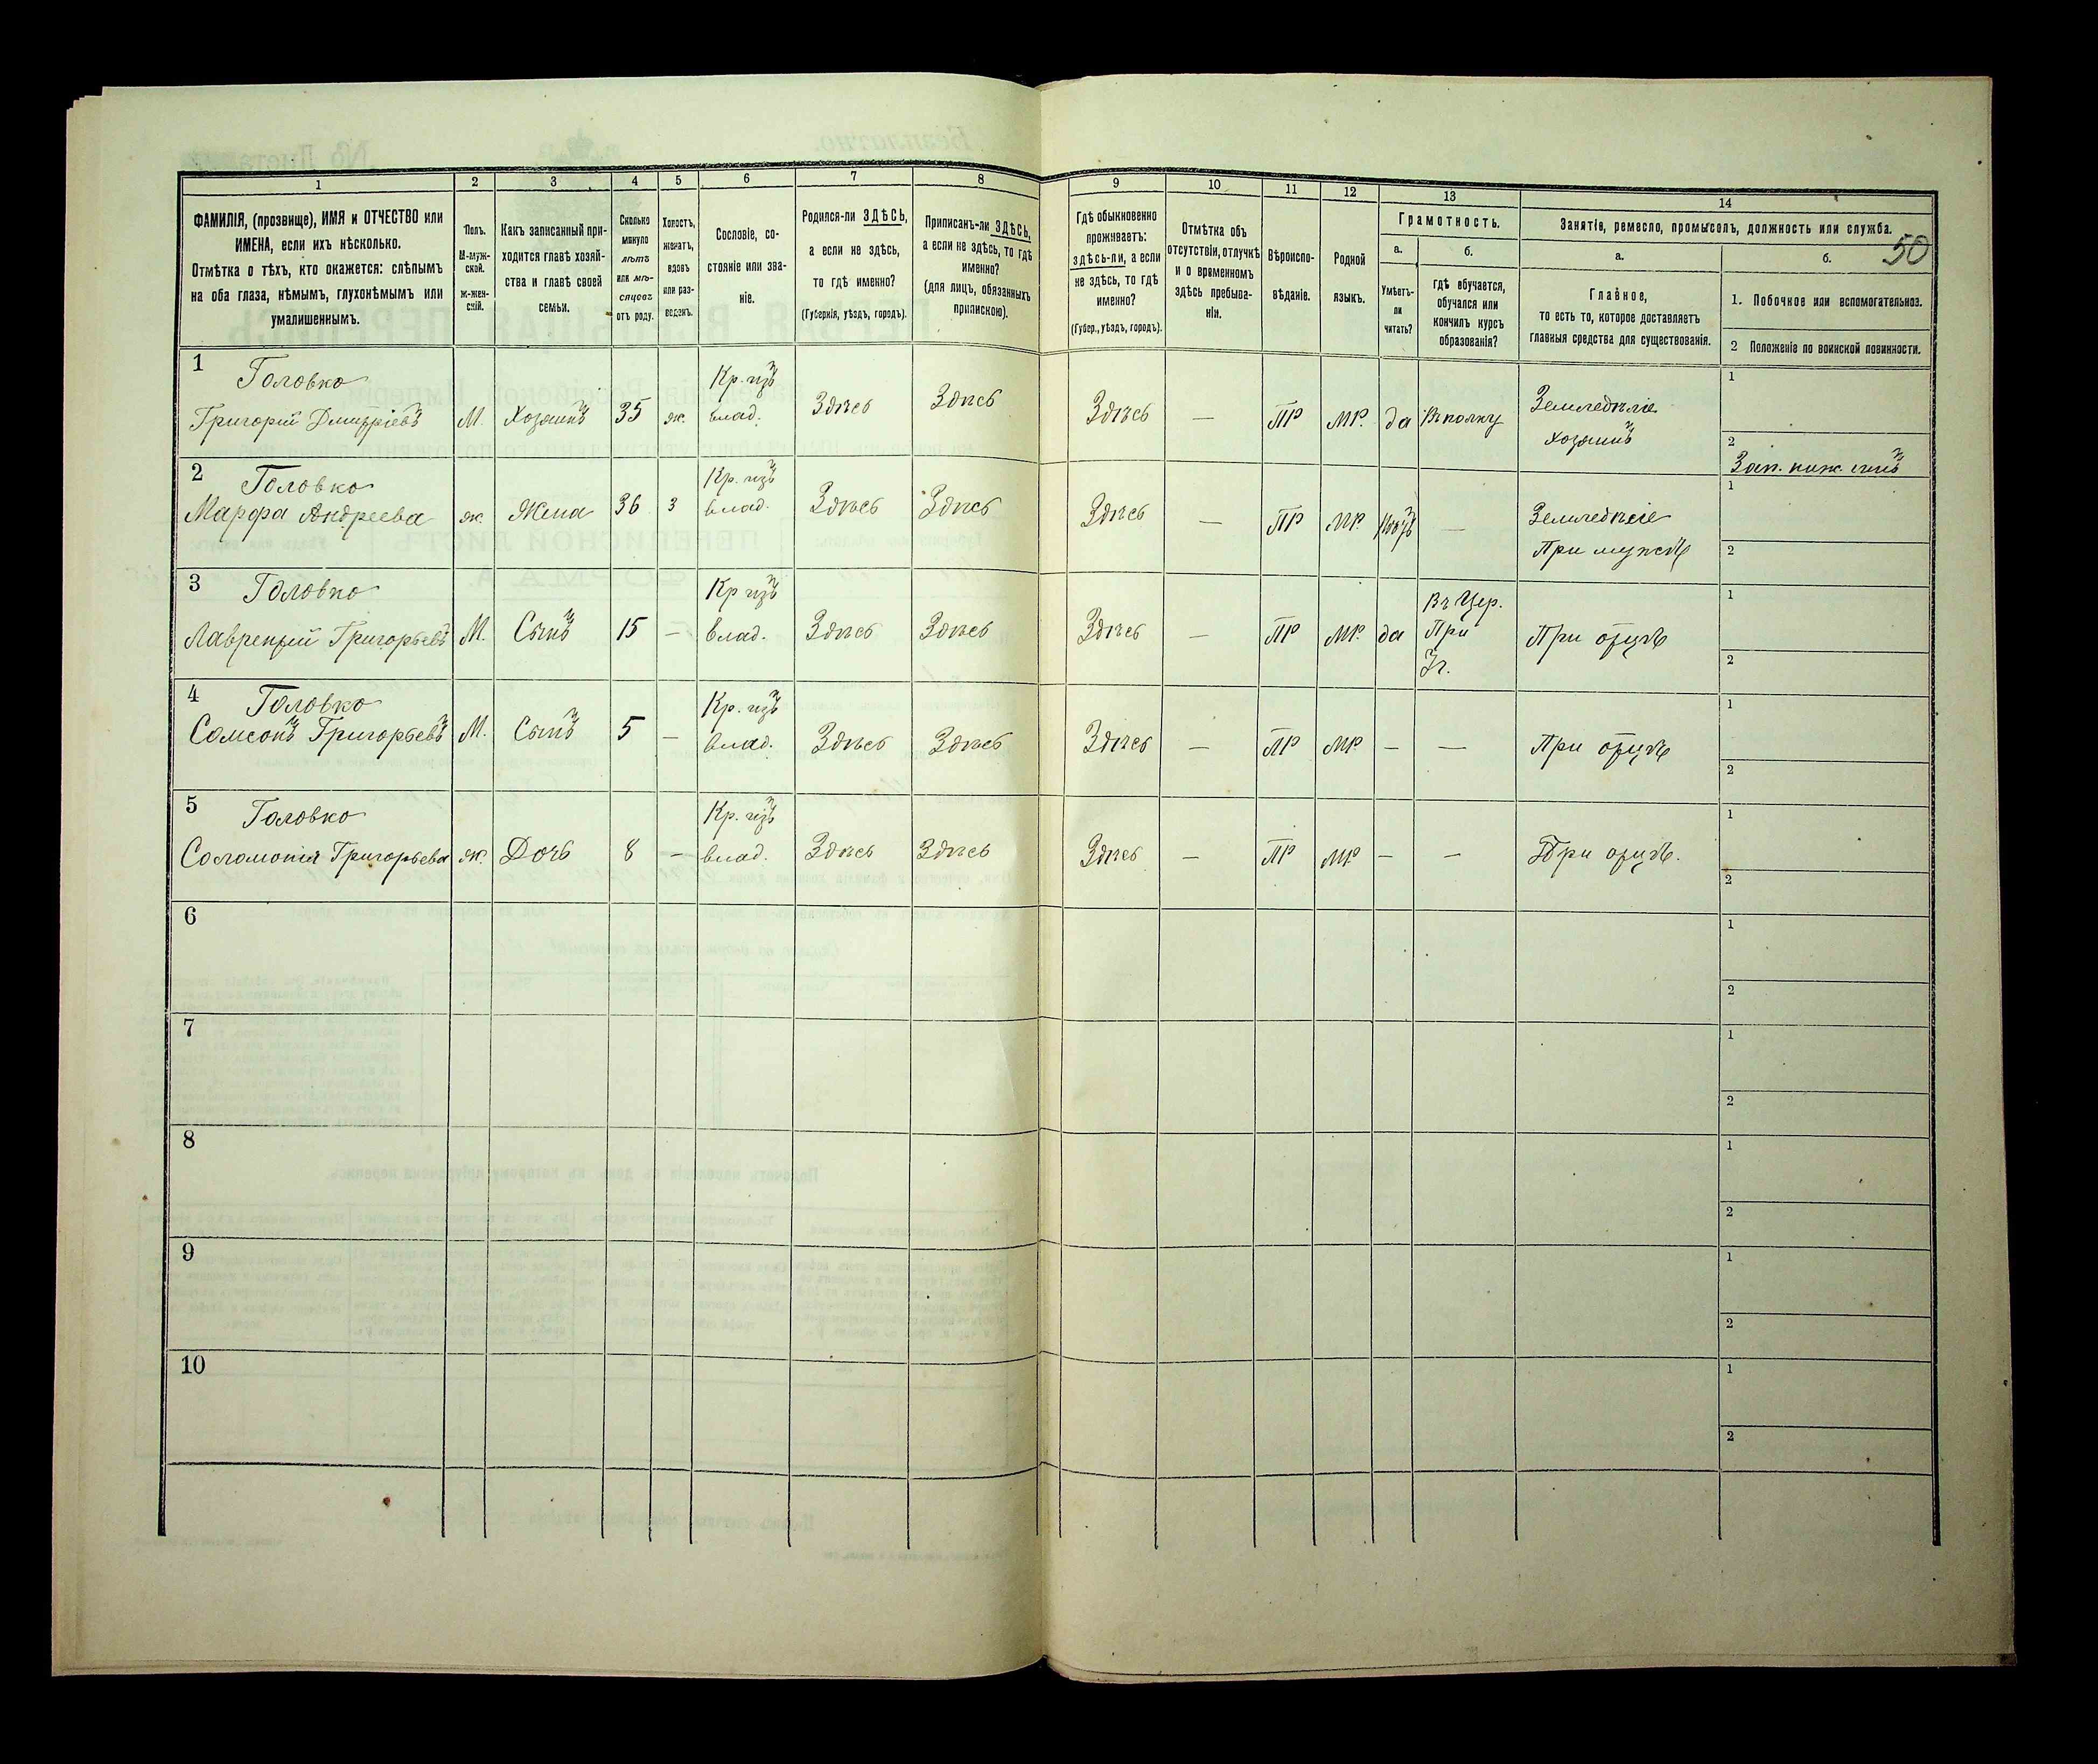 1 2 3 4 5 6 7 8 9 10 11 12 13 14
50
ФАМИЛІЯ, (прозвище), ИМЯ и ОТЧЕСТВО или
ИМЕНА, если ихъ нѣсколько.
Отмѣтка о тѣхъ, кто окажется: слѣпымъ
на оба глаза, нѣмымъ, глухонѣмымъ или
умалишеннымъ.
Полъ.
М-муж-
ской.
Ж-жен-
скій.
Какъ записанный при-
ходится главѣ хозяй-
ства и главѣ своей
семьи.
Сколько
минуло
лѣтъ
или мѣ-
сяцевъ
отъ роду.
Холостъ,
женатъ,
вдовъ
или раз-
веденъ.
Сословіе, со-
стояніе или зва-
ніе.
Родился-ли ЗДѢСЬ,
а если не здѣсь,
то гдѣ именно?
(Губернія, уѣздъ, городъ).
Приписанъ-ли ЗДѢСЬ,
а если не здѣсь, то гдѣ
именно?
(для лицъ, обязанныхъ
припискою).
Гдѣ обыкновенно
проживаетъ:
здѣсь-ли, а если
не здѣсь, то гдѣ
именно?
(Губер., уѣздъ, городъ).
Отмѣтка объ
отсутствіи, отлучкѣ
и о временномъ
здѣсь пребыва-
ніи.
Вѣроиспо-
вѣданіе.
Родной
языкъ.
Грамотность.
а.
Умѣетъ-
ли
читать?
б.
Гдѣ обучается,
обучался или
кончилъ курсъ
образованія?
Занятіе, ремесло, промыселъ, должность или служба.
а.
Главное,
то есть то, которое доставляетъ
главныя средства для существованія.
б.
1. Побочное или вспомогательное.
2 Положеніе по воинской повинности.
1 Головко Кр. изъ 1
Григорій Дмитріевъ М. Хозяинъ 35 ж. влад. Здѣсь Здѣсь Здѣсь — ПР МР. да Въ полку Земледѣліе
хозяинъ 2
Зап. ниж. чинъ
2 Головко Кр. изъ 1
Марфа Андреева ж. Жена 36 з влад. Здѣсь Здѣсь Здѣсь — ПР МР — Земледѣліе
При мужѣ 2
3 Головко Кр изъ Въ Цер. 1
Лаврентій Григорьевъ М. Сынъ 15 — влад. Здѣсь Здѣсь Здѣсь — ПР МР. да При При отцѣ
2
4 Головко Кр. изъ 1
Самсонъ Григорьевъ М. Сынъ 5 — влад. Здѣсь Здѣсь Здѣсь — ПР МР — — При отцѣ
2
5 Головко Кр. изъ 1
Соломонія Григорьева ж. Дочь 8 — влад. Здѣсь Здѣсь Здѣсь — ПР МР — — При отцѣ.
2
6 1
2
7 1
2
8 1
2
9 1
2
10 1
2